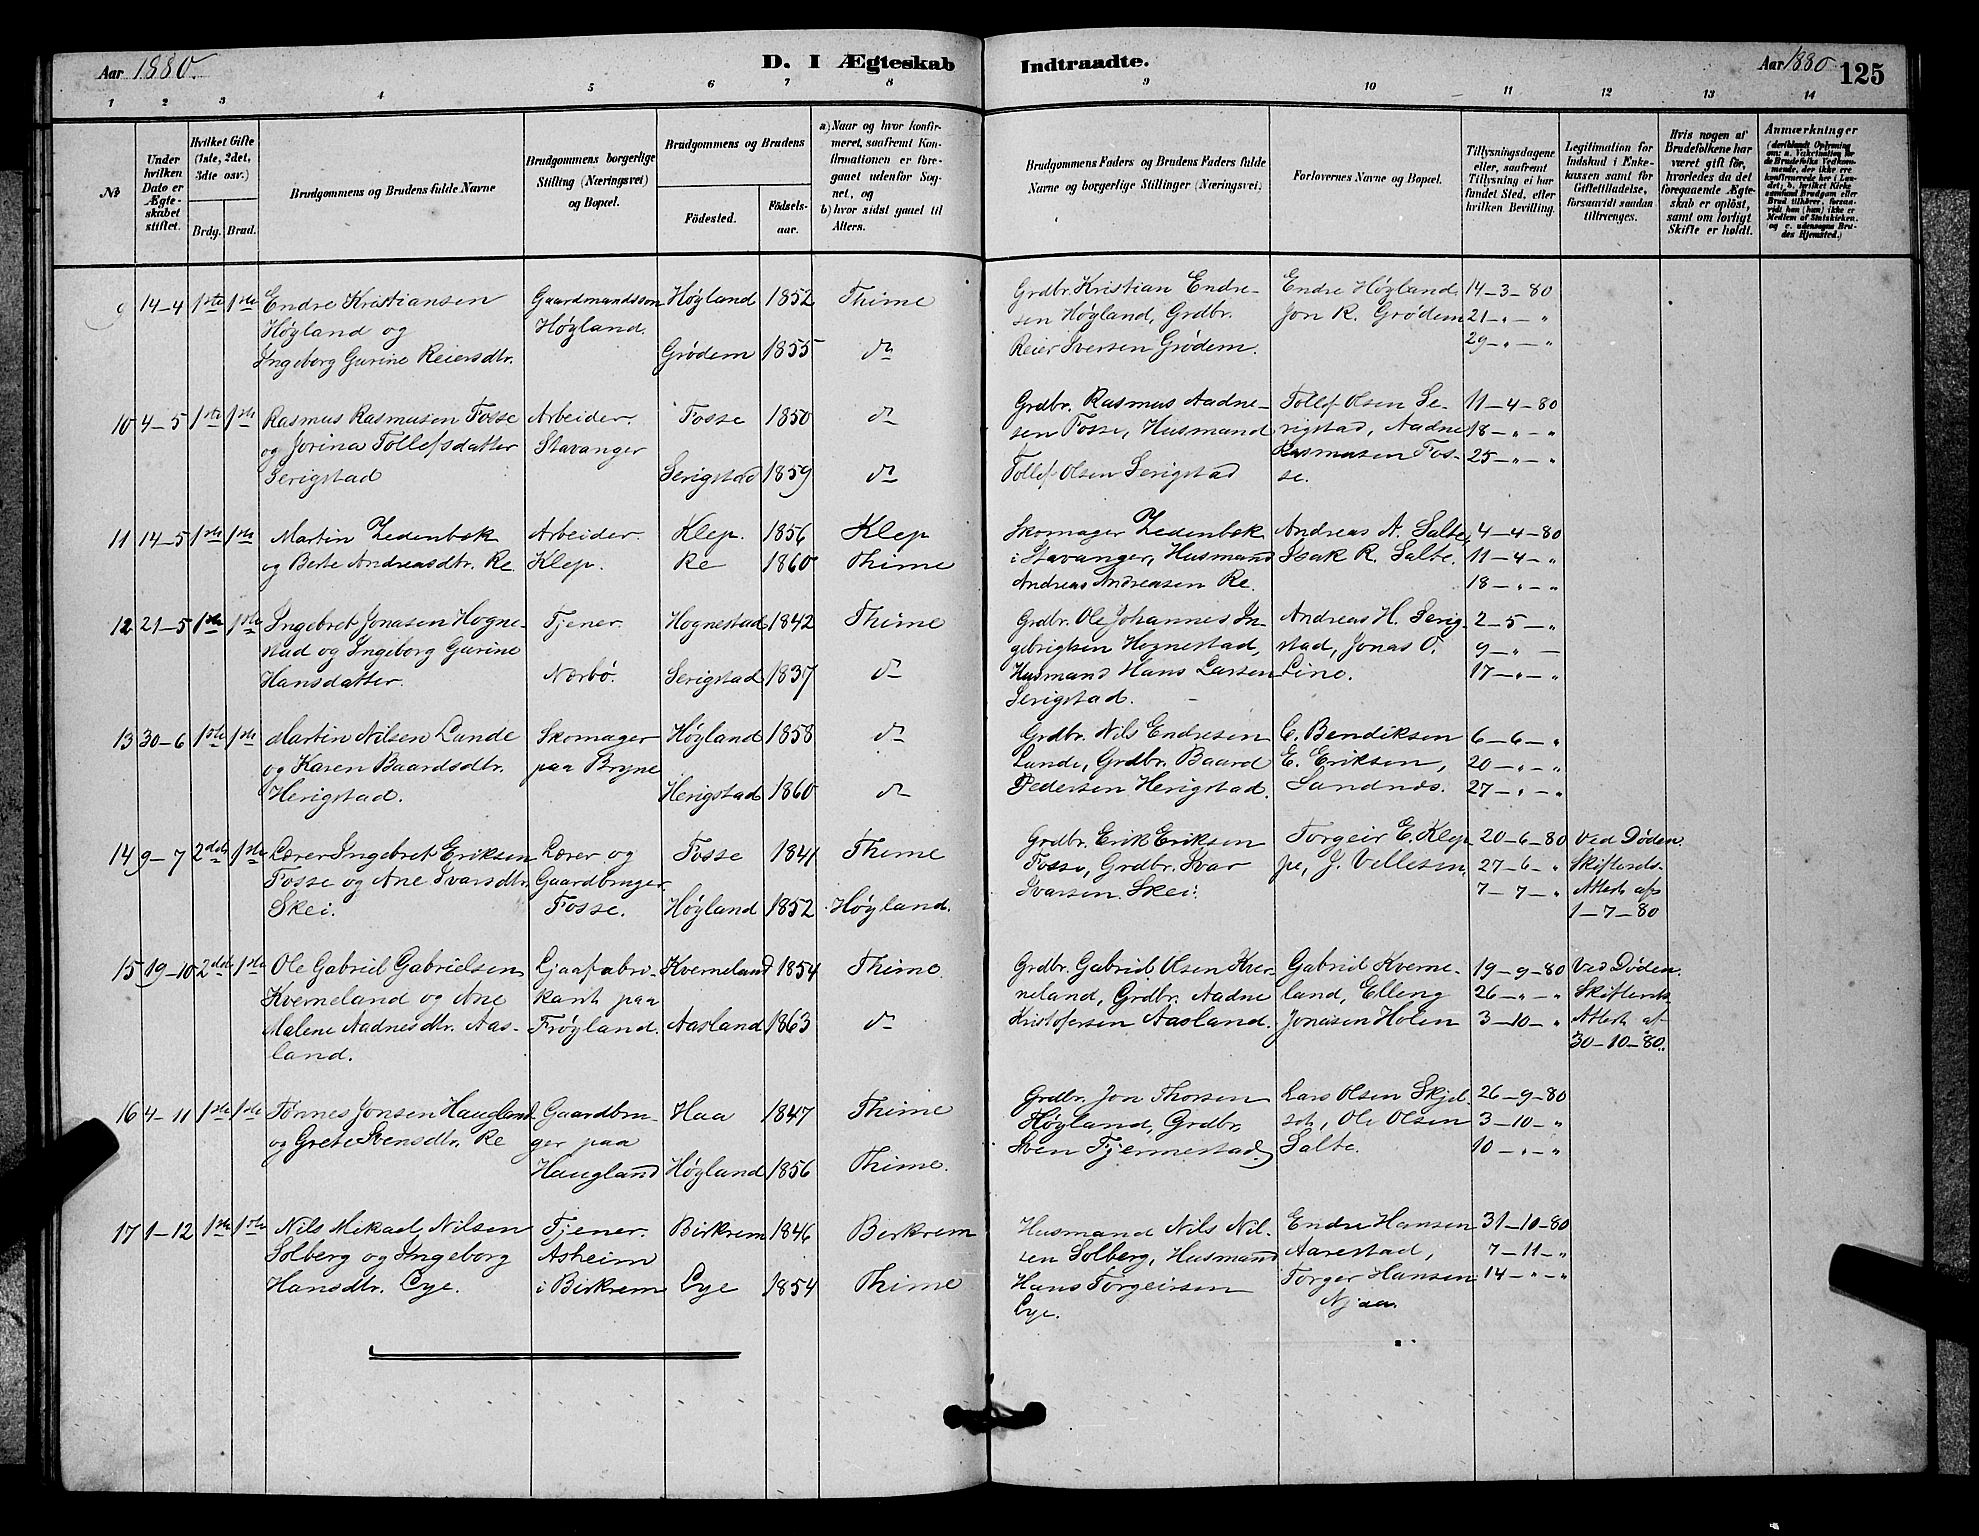 Aar 1880.
D. I Ægteskab Indtraadte.
Aar 1880 125
1 2 3 4 5 6 7 8 9 10 11 12 13 14
No
Under hvilken Dato er Ægteskabet stiftet.
Hvilket Gifte (1ste, 2det, 3die osv.)
Brdg. Brud.
Brudgommens og Brudens fulde Navne
Brudgommens borgerlige Stilling (Næringsvei) og Bopæl.
Brudgommens og Brudens
Födested. Födselsaar.
a) Naar og hvor konfirmeret, saafremt Konfirmationen er foregaaet udenfor Sognet, og
b) hvor sidst gaaet til Alters.
Brudgommens Faders og Brudens Faders fulde Navne og borgerlige Stillinger (Næringsvei)
Forlovernes Navne og Bopæl.
Tillysningsdagene eller, saafremt Tillysning ei har fundet Sted, efter hvilken Bevilling.
Legitimation for Indskud i Enkekassen samt for Giftetilladelse, forsaavidt saadan tiltrænges.
Hvis nogen af Brudefolkene har været gift för, hvorledes da det foregaaende Ægteskab er oplöst, samt om lovligt Skifte er holdt.
Anmærkninger
9 14-4 1ste 1ste Endre Kristiansen Gaardmandssøn Høyland 1852 Thime
Høyland og Høyland.
Ingeborg Gurine Reiersdtr. Grødem 1855 do
Grdbr. Kristian Endre- Endre Høyland, 14-3-80
sen Høyland, Grdbr. Jon R. Grødem 21-"-"
Reier Iversen Grødem. 29-"-"
10 4-5 1ste 1ste Rasmus Rasmusen Fosse Arbeider. Fosse 1850 do
og Jorina Tollefsdatter Stavanger
Serigstad Serigstad 1859 do
Grdbr. Rasmus Aadne- Tollef Olsen Se- 11-4-80
sen Fosse, Husmand rigstad, Aadne 18-"-"
Tollef Olsen Serigstad Rasmusen Fos- 25-"-"
se.
11 14-5 1ste 1ste Martin Zedenbok Arbeider. Klep. 1856 Klep
og Berte Andreasdtr. Re Klep. Re 1860 Thime
Skomager Zedenbok Andreas A. Salte, 4-4-80
i Stavanger, Husmand Isak R. Salte. 11-4-"
Andreas Andreasen Re. 18-"-"
12 21-5 1ste 1ste Ingebret Jonasen Hogne- Tjener. Hognestad 1842 Thime
stad og Ingeborg Gurine
Hansdatter. Nærbø. Serigstad 1837 do
Grdbr. Ole Johannes In- Andreas H. Serig- 2-5-"
gebrigtsen Hognestad, stad, Jonas O. 9-"-
Husmand Hans Larsen Line. 17-"-"
Serigstad.
13 30-6 1ste 1ste Martin Nilsen Lunde Skomager Høyland 1858 do
og Karen Baardsdtr. paa Bryne
Herigstad. Herigstad 1860 do
Grdbr. Nils Endresen C. Bendiksen 6-6-"
Lunde, Grdbr. Baard E. Eriksen, 20-"-"
Pedersen Herigstad. Sandnæs. 27-"-"
14 9-7 2det 1ste Lærer Ingebret Eriksen Lærer og Fosse 1841 Thime
Fosse og Ane Ivarsdtr. Gaardbruger
Skei. Fosse. Høyland 1852 Høyland.
Grdbr. Erik Eriksen Torgeir E. Klep- 20-6-80 Ved Døden.
Fosse, Grdbr. Ivar pe, J. Vellesen. 27-6-" Skifterets-
Ivarsen Skei. 7-7-" Attest af
1-7-80
15 19-10 2det 1ste Ole Gabriel Gabrielsen Ljaafabri- Kverneland 1854 Thime.
Kverneland og Ane kant paa
Malene Aadnesdtr. Aas- Frøyland. Aasland 1863 do
land.
Grdbr. Gabriel Olsen Kver- Gabriel Kverne- 19-9-80 Ved Døden.
neland, Grdbr. Aadne land, Elleng 26-"-" Skifterets
Kristofersen Aasland. Jonasen Holen 3-10-" Attest af
30-10-80.
16 4-11 1ste 1ste Tønnes Jonsen Haugland Gaardbru- Haa 1847 Thime
og Grete Svensdtr. Re ger paa
Haugland Høyland 1856 Thime.
Grdbr. Jon Thorsen Lars Olsen Skjel- 26-9-80
Høyland, Grdbr. Ole Olsen 3-10-"
Sven Fjermestad. Salte. 10-"-"
17 1-12 1ste 1ste Nils Mikael Nilsen Tjener. Birkrem 1846 Birkrem
Solberg og Ingeborg Asheim
Hansdtr. Lye. i Birkrem Lye 1854 Thime
Husmand Nils Nil- Endre Hansen 31-10-80
sen Solberg, Husmand Aarestad, 7-11-"
Hans Torgeirsen Torger Hansen 14-"-"
Lye. Njaa.